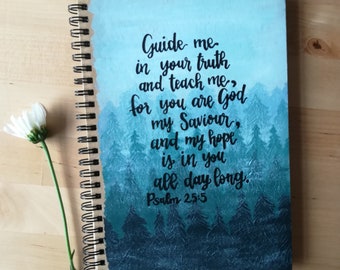 Guide me
in your truth
and teach me,
for you are God
my Saviour,
and my hope
is in you
all day long.
Psalm 25:5